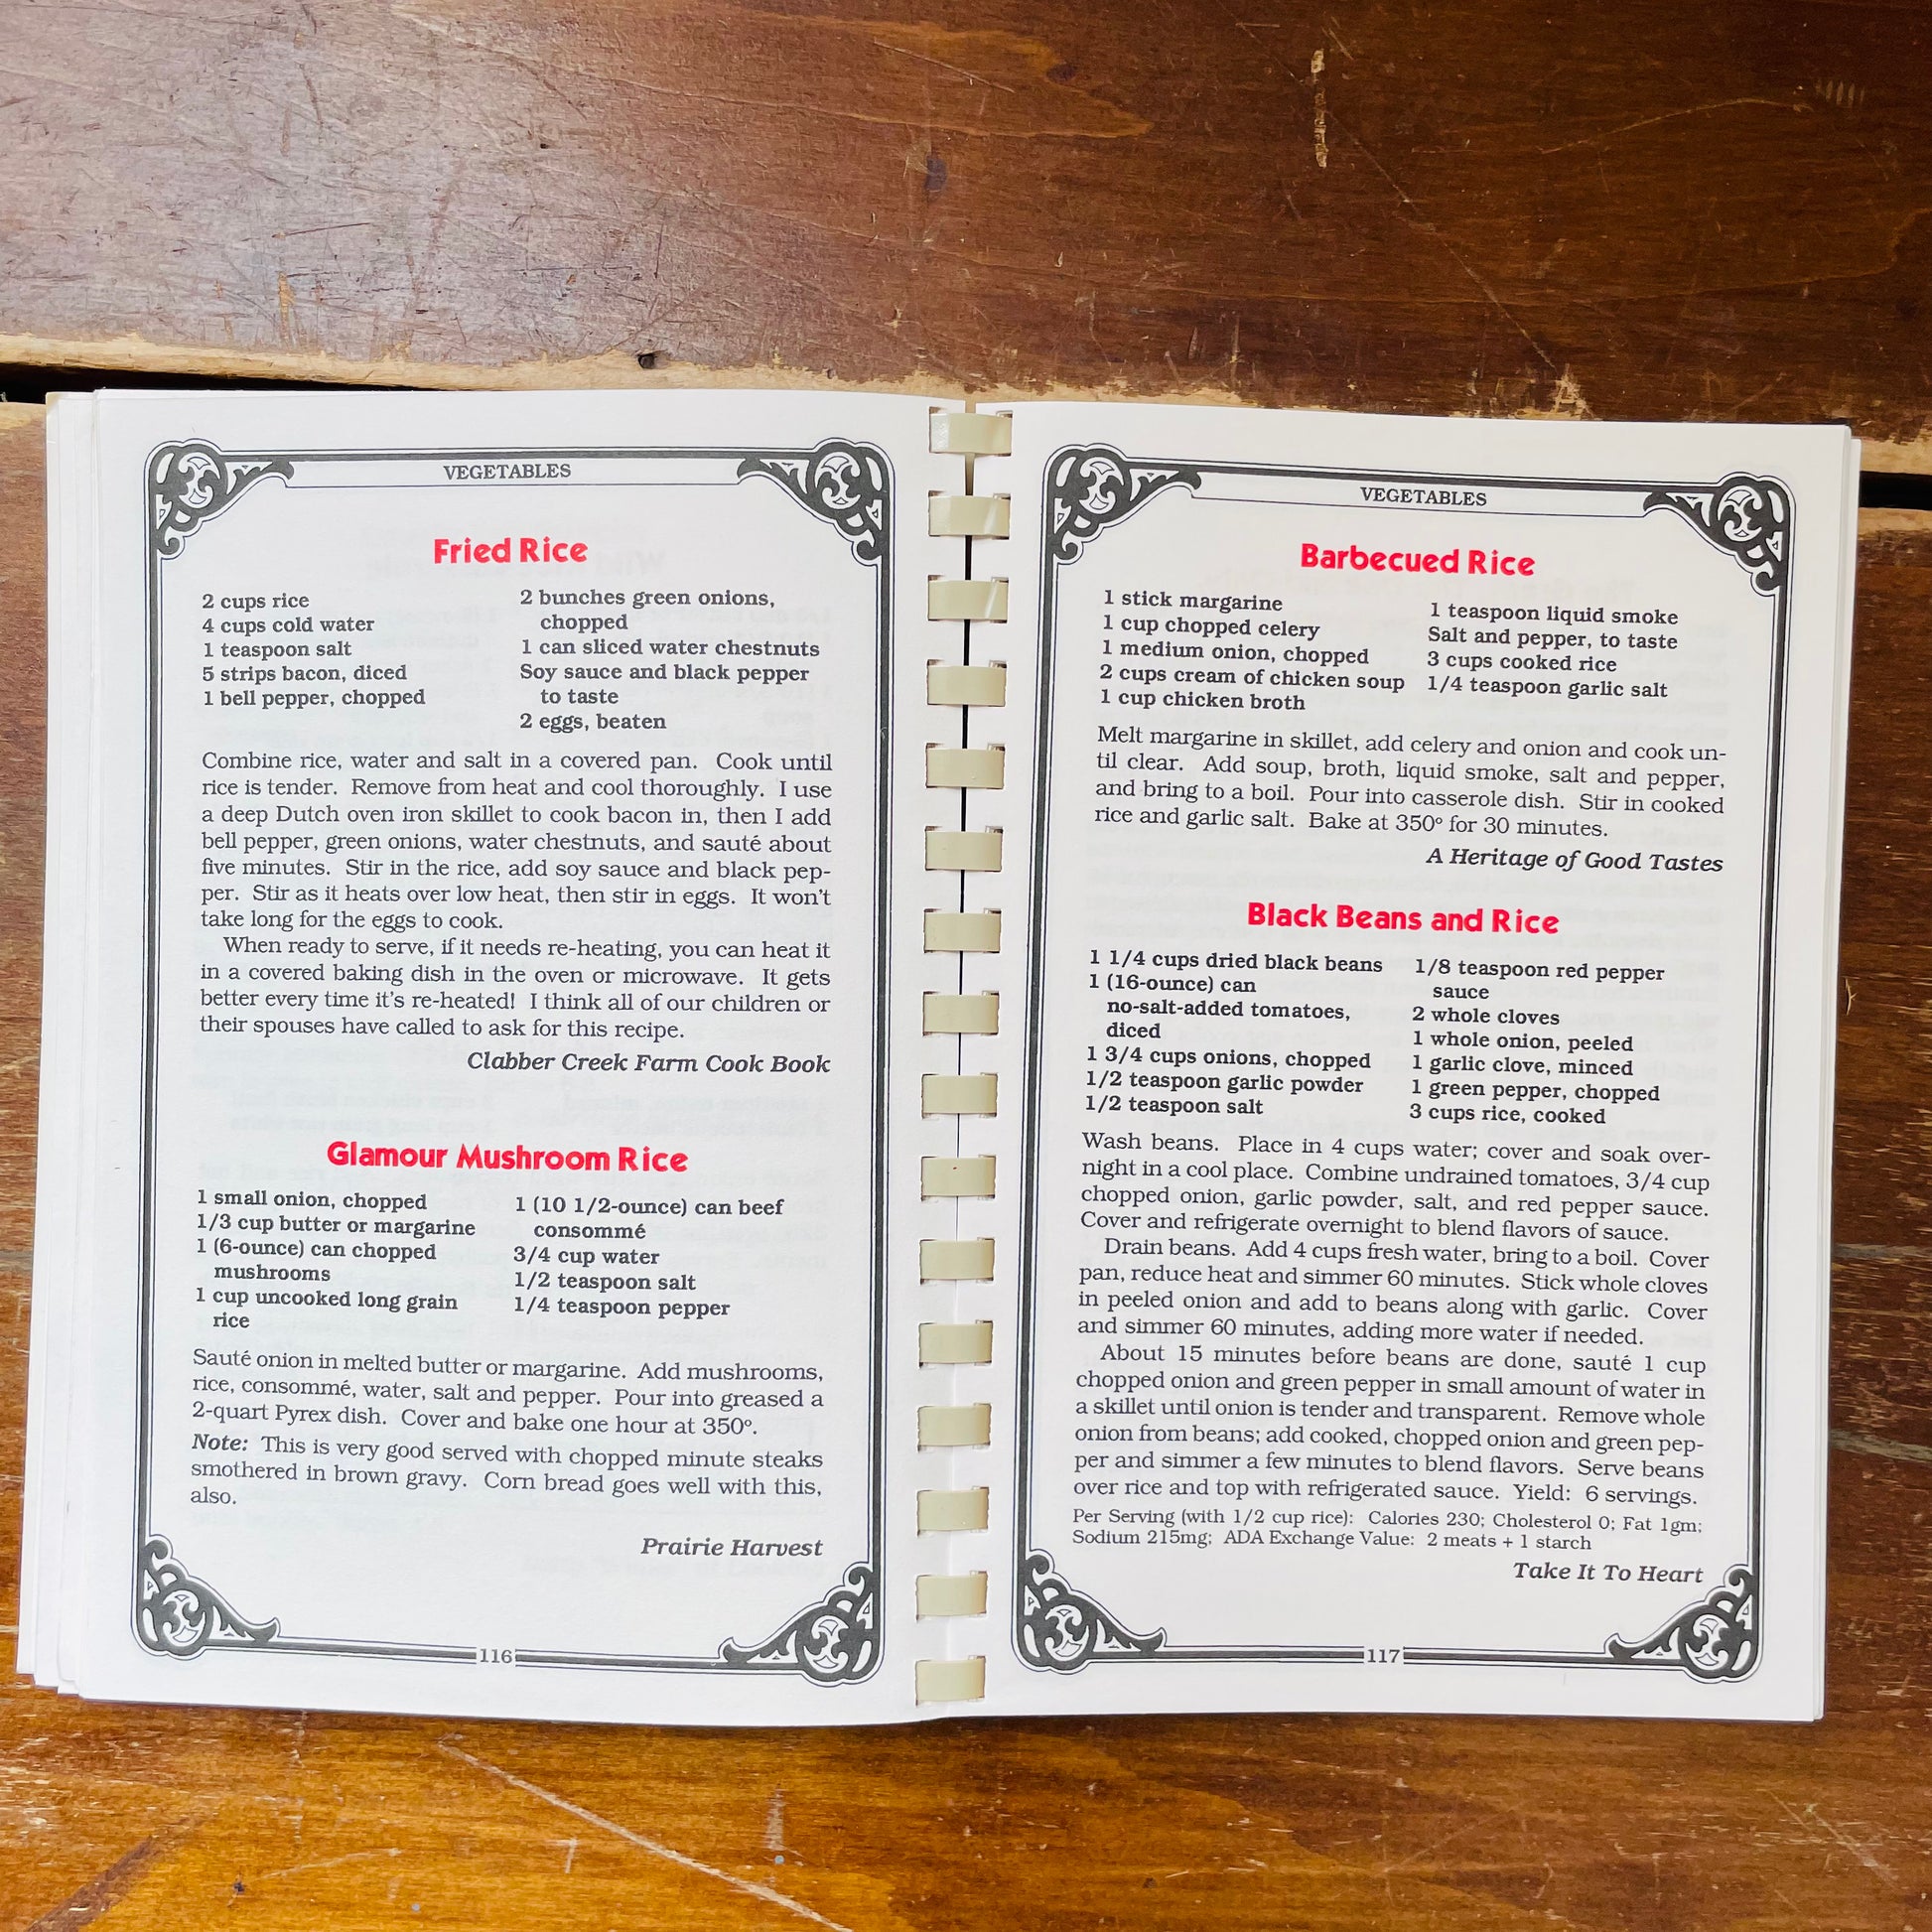 VEGETABLES
Fried Rice
2 cups rice
4 cups cold water
1 teaspoon salt
5 strips bacon, diced
1 bell pepper, chopped
2 bunches green onions,
chopped
1 can sliced water chestnuts
Soy sauce and black pepper
to taste
2 eggs, beaten
Combine rice, water and salt in a covered pan. Cook until
rice is tender. Remove from heat and cool thoroughly. I use
a deep Dutch oven iron skillet to cook bacon in, then I add
bell pepper, green onions, water chestnuts, and sauté about
five minutes. Stir in the rice, add soy sauce and black pep-
per. Stir as it heats over low heat, then stir in eggs. It won't
take long for the eggs to cook.
When ready to serve, if it needs re-heating, you can heat it
in a covered baking dish in the oven or microwave. It gets
better every time it's re-heated! I think all of our children or
their spouses have called to ask for this recipe.
Clabber Creek Farm Cook Book
Glamour Mushroom Rice
1 small onion, chopped
1/3 cup butter or margarine
1 (6-ounce) can chopped
mushrooms
1 cup uncooked long grain
rice
1 (10 1/2-ounce) can beef
consommé
3/4 cup water
1/2 teaspoon salt
1/4 teaspoon pepper
Sauté onion in melted butter or margarine. Add mushrooms,
rice, consommé, water, salt and pepper. Pour into greased a
2-quart Pyrex dish. Cover and bake one hour at 350º.
Note: This is very good served with chopped minute steaks
smothered in brown gravy. Corn bread goes well with this,
also.
Prairie Harvest
116
VEGETABLES
Barbecued Rice
1 stick margarine
1 cup chopped celery
1 medium onion, chopped
2 cups cream of chicken soup
1 cup chicken broth
1 teaspoon liquid smoke
Salt and pepper, to taste
3 cups cooked rice
1/4 teaspoon garlic salt
Melt margarine in skillet, add celery and onion and cook un-
til clear. Add soup, broth, liquid smoke, salt and pepper,
and bring to a boil. Pour into casserole dish. Stir in cooked
rice and garlic salt. Bake at 350º for 30 minutes.
A Heritage of Good Tastes
Black Beans and Rice
1 1/4 cups dried black beans
1 (16-ounce) can
no-salt-added tomatoes,
diced
1 3/4 cups onions, chopped
1/2 teaspoon garlic powder
1/2 teaspoon salt
1/8 teaspoon red pepper
sauce
2 whole cloves
1 whole onion, peeled
1 garlic clove, minced
1 green pepper, chopped
3 cups rice, cooked
Wash beans. Place in 4 cups water; cover and soak over-
night in a cool place. Combine undrained tomatoes, 3/4 cup
chopped onion, garlic powder, salt, and red pepper sauce.
Cover and refrigerate overnight to blend flavors of sauce.
Drain beans. Add 4 cups fresh water, bring to a boil. Cover
pan, reduce heat and simmer 60 minutes. Stick whole cloves
in peeled onion and add to beans along with garlic. Cover
and simmer 60 minutes, adding more water if needed.
About 15 minutes before beans are done, sauté 1 cup
chopped onion and green pepper in small amount of water in
a skillet until onion is tender and transparent. Remove whole
onion from beans; add cooked, chopped onion and green pep-
per and simmer a few minutes to blend flavors. Serve beans
over rice and top with refrigerated sauce. Yield: 6 servings.
Per Serving (with 1/2 cup rice): Calories 230; Cholesterol 0; Fat 1gm;
Sodium 215mg; ADA Exchange Value: 2 meats + 1 starch
Take It To Heart
117